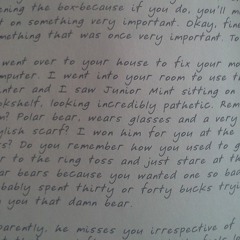 ening the box-because if you do, you'll m
t on something very important. Okay, fine
mething that was once very important. To
went over to your house to fix your mo
mputer. I went into your room to use t
nter and I saw Junior Mint sitting on
okshelf, looking incredibly pathetic. Rem
m? Polar bear, wears glasses and a very
glish scarf? I won him for you at the
s? Do you remember how you used to g
r to the ring toss and just stare at th
ar bears because you wanted one so ba
bably spent thirty or forty bucks tryi
n you that damn bear.
parently, he misses you irrespective of